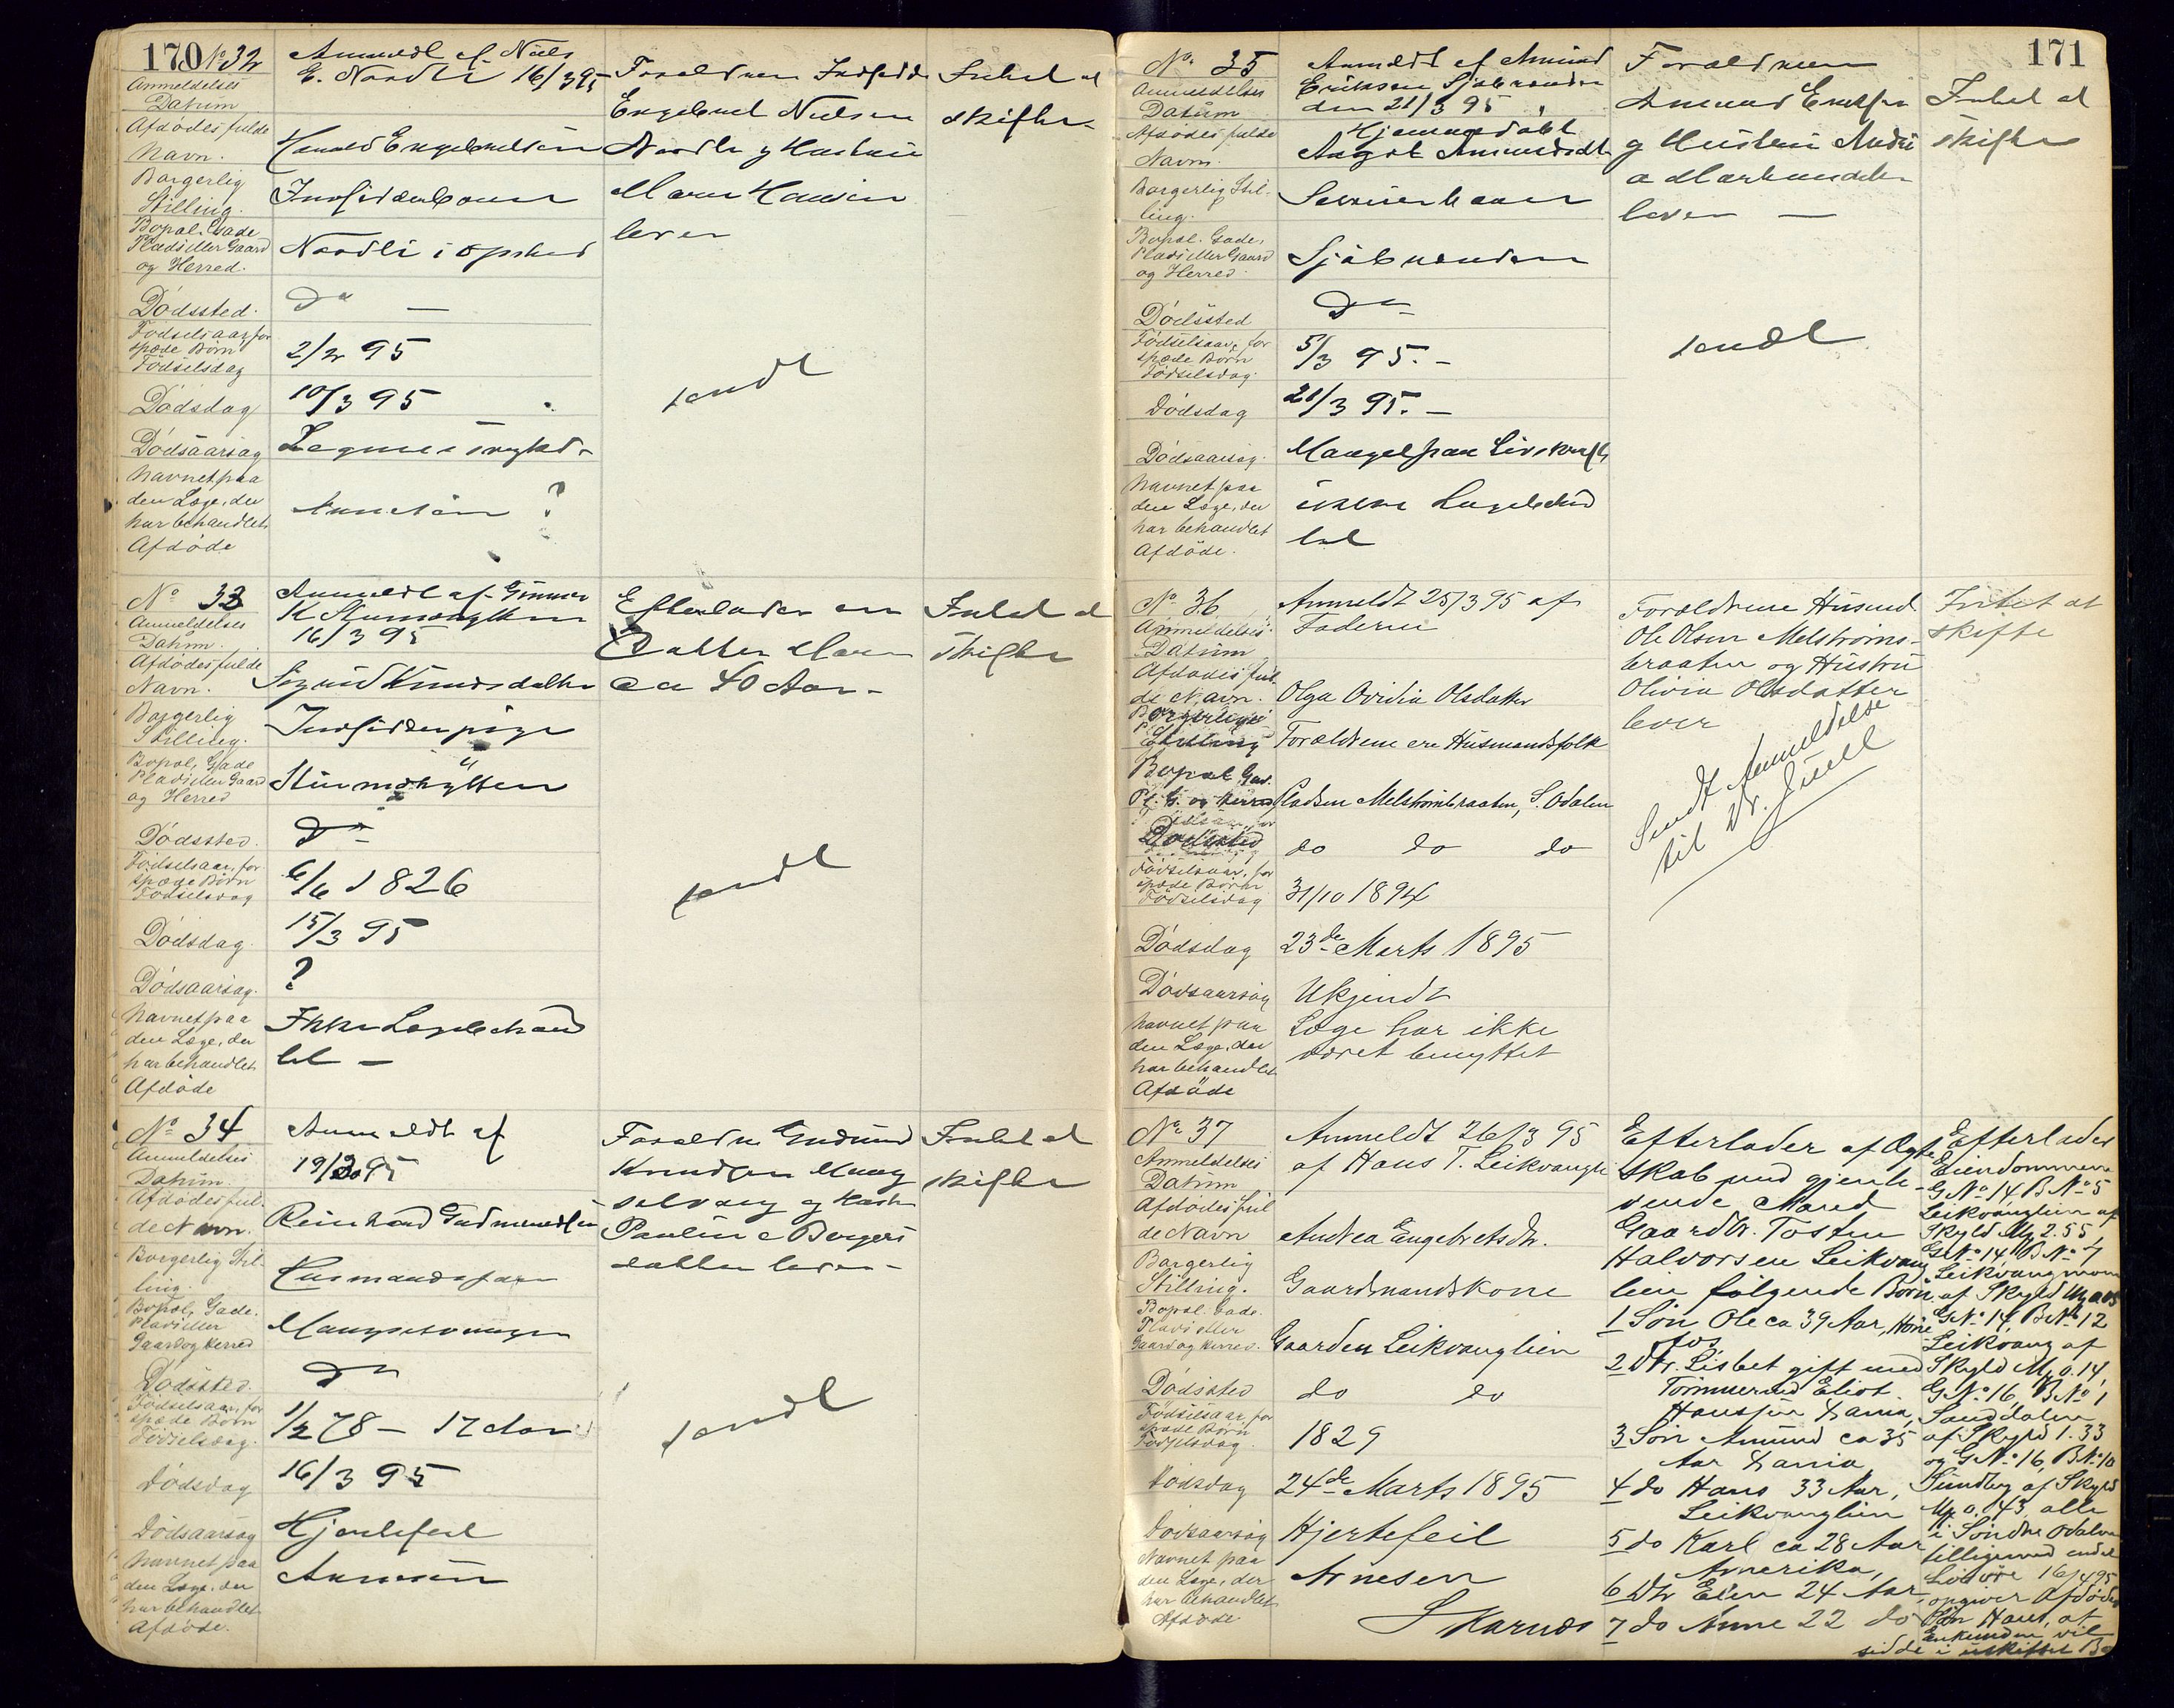 170
No 32
Anmeldt af Niels
E. Nordli 16/3 95
Anmeldelses
Datum
Afdødes fulde
Navn.
Harald Engebretsen
Borgerlig
Stilling.
Inderstbarn
Bopæl. Gade
Plads eller Gaard
og Herred.
Nordli i
Dødssted.
Do —
Fødselsaar, for
spæde Børn
Fødselsdag
2/2 95
Dødsdag
10/3 95
Dødsaarsag
Navnet paa
den Læge, der
har behandlet
Afdøde
?
Engebret Nielsen
Nordli og Hustru
Maren
lever
Intet at
skifte
sendt
No 33
Anmeldelses
Datum.
Anmeldt af Gunner
K
16/3 95
Afdødes fulde
Navn.
Sigrid Knudsdatter
Borgerlig
Stilling.
Bopæl, Gade
Plads eller Gaard
og Herred
Dødssted.
Do —
Fødselsaar, for
spæde Børn
Fødselsdag
6/6 1826
Dødsdag.
15/3 95
Dødsaarsag.
?
Navnet paa
den Læge, der
har behandlet
Afdøde
Ikke Lægebehand
let —
Efterlader en
Datter Maren
ca 40 Aar —
Intet at
skifte
sendt
No 34
Anmeldelses
Datum.
Anmeldt af
19/3 95
Afdødes ful-
de Navn.
Reinhard Gudmundsen
Borgerlig Stil-
ling.
Husmandssøn
Bopæl, Gade.
Plads eller
Gaard og Herred
Dødssted.
Do
Fødselsaar, for
spæde Børn
Fødselsdag.
1/2 78 — 17 Aar
Dødsdag
16/3 95
Dødsaarsag
Hjertefeil
Navnet paa
den Læge, der
har behandlet
Afdøde.
Arnesen
Forældre Gudmund
Knudsen
og Hustru
Pauline Borgers
datter lever —
Intet at
skifte
sendt
171
No 35
Anmeldelses
Datum
Anmeldt af Amund
Eriksen
den 21/3 95
Afdødes fulde
Navn.
Hjemmedøbt
Aagot Amundsdtr
Borgerlig Stil-
ling.
Bopæl. Gade,
Plads eller Gaard
og Herred
Dødssted
Do —
Fødselsaar, for
spæde Børn
Fødselsdag.
5/3 95. —
Dødsdag
21/3 95. —
Dødsaarsag.
Mangel paa Livskraft
Navnet paa
den Læge, der
har behandlet
Afdøde.
ikke Lægebehand
let
Forældrene
Amund Eriksen
og Hustru
lever —
Intet at
skifte
sendt
No 36
Anmeldelses-
Datum
Anmeldt 25/3 95 af
Faderen
Afdødes ful-
de Navn.
Olga Ovidia Olsdatter
Borgerlige
Stilling
Forældrene ere Husmandsfolk
Bopæl, Gad.
Pl. G. og Herred
Pladsen Melstrømbraaten, S. Odalen
Dødssted
do do do
Fødselsaar, for
spæde Børn
Fødselsdag
31/10 1894
Dødsdag
23de Marts 1895
Dødsaarsag
Ukjendt
Navnet paa
den Læge, der
har behandlet
Afdøde
Læge har ikke
været benyttet
Forældrene Husmd.
Ole Olsen Melstrøms-
braaten og Hustru
Olivia Olsdatter
lever
Intet at
skifte
Sendt Anmeldelse
til Dr. Juell
No 37
Anmeldelses
Datum
Anmeldt 26/3 95
af Hans T. Leikvanglien
Afdødes ful
de Navn
Andrea Engebretsdtr.
Borgerlig
Stilling.
Gaardmandskone
Bopæl. Gade.
Plads eller
Gaard og Herred.
Gaarden Leikvanglien
Dødssted
do do
Fødselsaar, for
spæde Børn
Fødselsdag.
1829
Dødsdag
24de Marts 1895
Dødsaarsag
Hjertefeil
Navnet paa
den Læge, der
har behandlet
Afdøde
Arnesen
Skarnes
Efterlader af Ægte
skab med gjenle-
vende Mand
Gaardbr. Tosten
Halvorsen Leikvang
lien følgende Børn
1 Søn Ole ca 39 Aar, Høne
fos
2 Dtr. Lisbet gift med
Tømmermd Eliot
3 Søn Amund ca 35
Aar
4 do Hans 33 Aar,
Leikvanglien
5 do Karl ca 28 Aar
Amerika,
6 Dtr Elen 24 Aar
7 do Anne 22 do
Efterlader
Eiendommene
G No 14 B No 5
Leikvanglien af
Skyld Mk 2.55,
G No 14, B No 7
Leikvangmoen
af Skyld Mk 0.05
G No 14, B No 12
Leikvang af
Skyld Mk 0.14,
G No 16, B No 1
Sanddalen
af Skyld 1.33
og G No 16, B No 10
Sundby af Skyld
Mk 0.43, alle
i Søndre Odalen
tilligemed endel
Løsøre 16/4 95
opgiver Afdødes
Søn Hans, at
Enkemden vil
sidde i uskiftet Bo